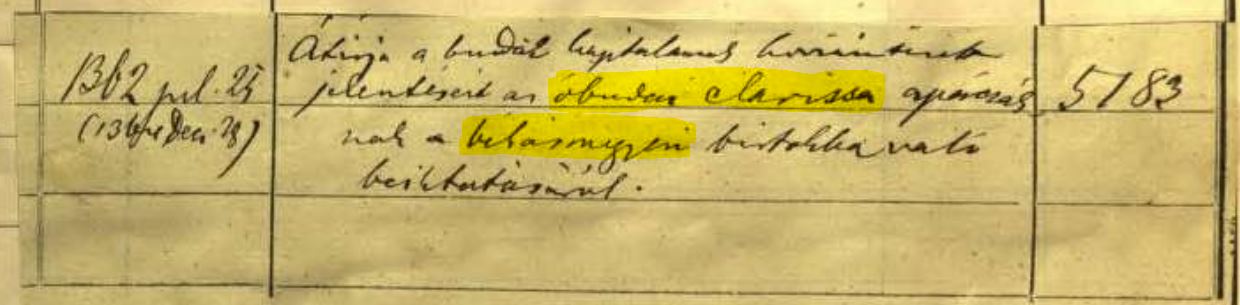 1362 jul. 25
(1361re Dec. 28)
Átírja a budai káptalannak
jelentését az óbudai clarissa apáczák
nak a békásmegyeri birtokba való
beiktatásáról.
5183